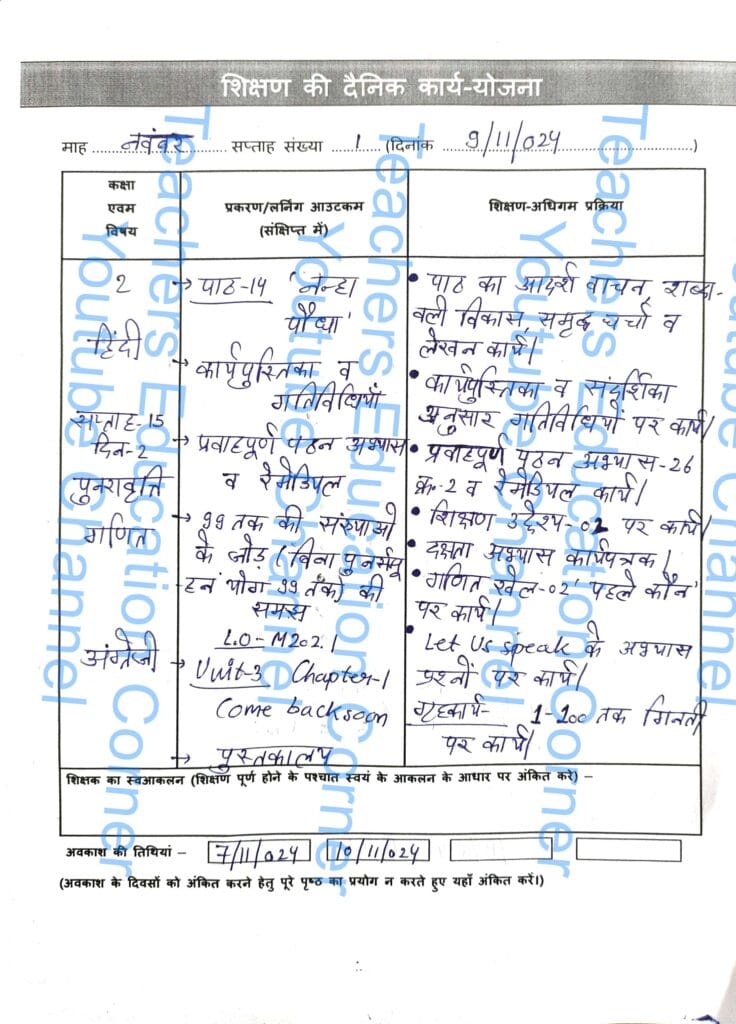 शिक्षण की दैनिक कार्य-योजना
माह नवंबर सप्ताह संख्या 1 (दिनांक 9/11/024)
कक्षा
एवम
विषय
प्रकरण/लर्निंग आउटकम
(संक्षिप्त में)
शिक्षण-अधिगम प्रक्रिया
2
हिंदी
सप्ताह-15
दिन-2
पुनरावृत्ति
गणित
अंग्रेजी
→ पाठ-14 'नन्हा
पौधा'
→ कार्यपुस्तिका व
गतिविधियाँ
→ प्रवाहपूर्ण पठन अभ्यास
व रेमेडियल
→ 99 तक की संख्याओ
के जोड़ (बिना पुनर्समू
हन योग 99 तक) की
समझ
L.O-M202.1
→ Unit-3 Chapter-1
Come back soon
→ पुस्तकालय
• पाठ का आदर्श वाचन, शब्दा-
वली विकास, समृद्ध चर्चा व
लेखन कार्य।
• कार्यपुस्तिका व संदर्शिका
अनुसार गतिविधियों पर कार्य।
• प्रवाहपूर्ण पठन अभ्यास-26
क्र-2 व रेमेडियल कार्य।
• शिक्षण उद्देश्य-02 पर कार्य।
• दक्षता अभ्यास कार्यपत्रक।
• गणित खेल-02 'पहले कौन'
पर कार्य।
• Let Us speak के अभ्यास
प्रश्नों पर कार्य।
गृहकार्य- 1-100 तक गिनती
पर कार्य।
शिक्षक का स्वआकलन (शिक्षण पूर्ण होने के पश्चात स्वयं के आकलन के आधार पर अंकित करे) –
अवकाश की तिथियां – 7/11/024 10/11/024
(अवकाश के दिवसों को अंकित करने हेतु पूरे पृष्ठ का प्रयोग न करते हुए यहाँ अंकित करें।)
Teachers Education Corner
Youtube Channel
Teachers Education Corner
Youtube Channel
Teachers Education Corner
Youtube Channel